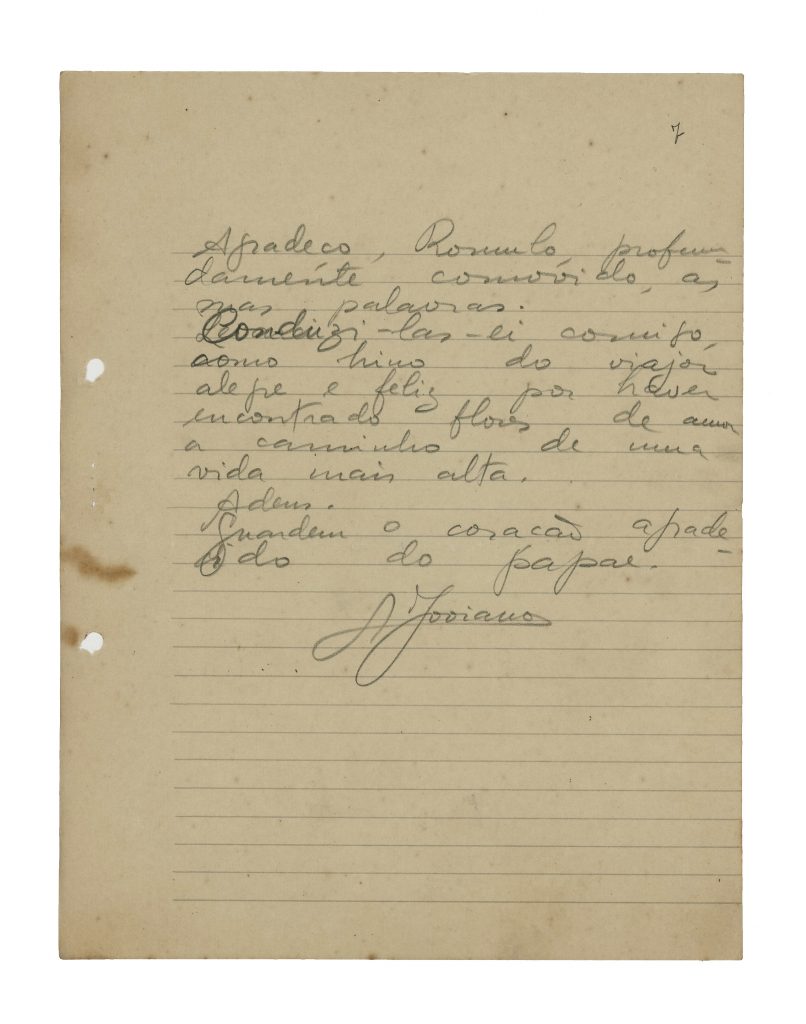 7
Agradeco, Romulo, profun-
damente comovido, as
suas palavras.
Conduzi-las-ei comigo,
como hino do viajor
alegre e feliz por haver
encontrado flores de amor
a caminho de uma
vida mais alta.
Adeus.
Guardem o coracão agrade-
cido do papae.
A Joviano